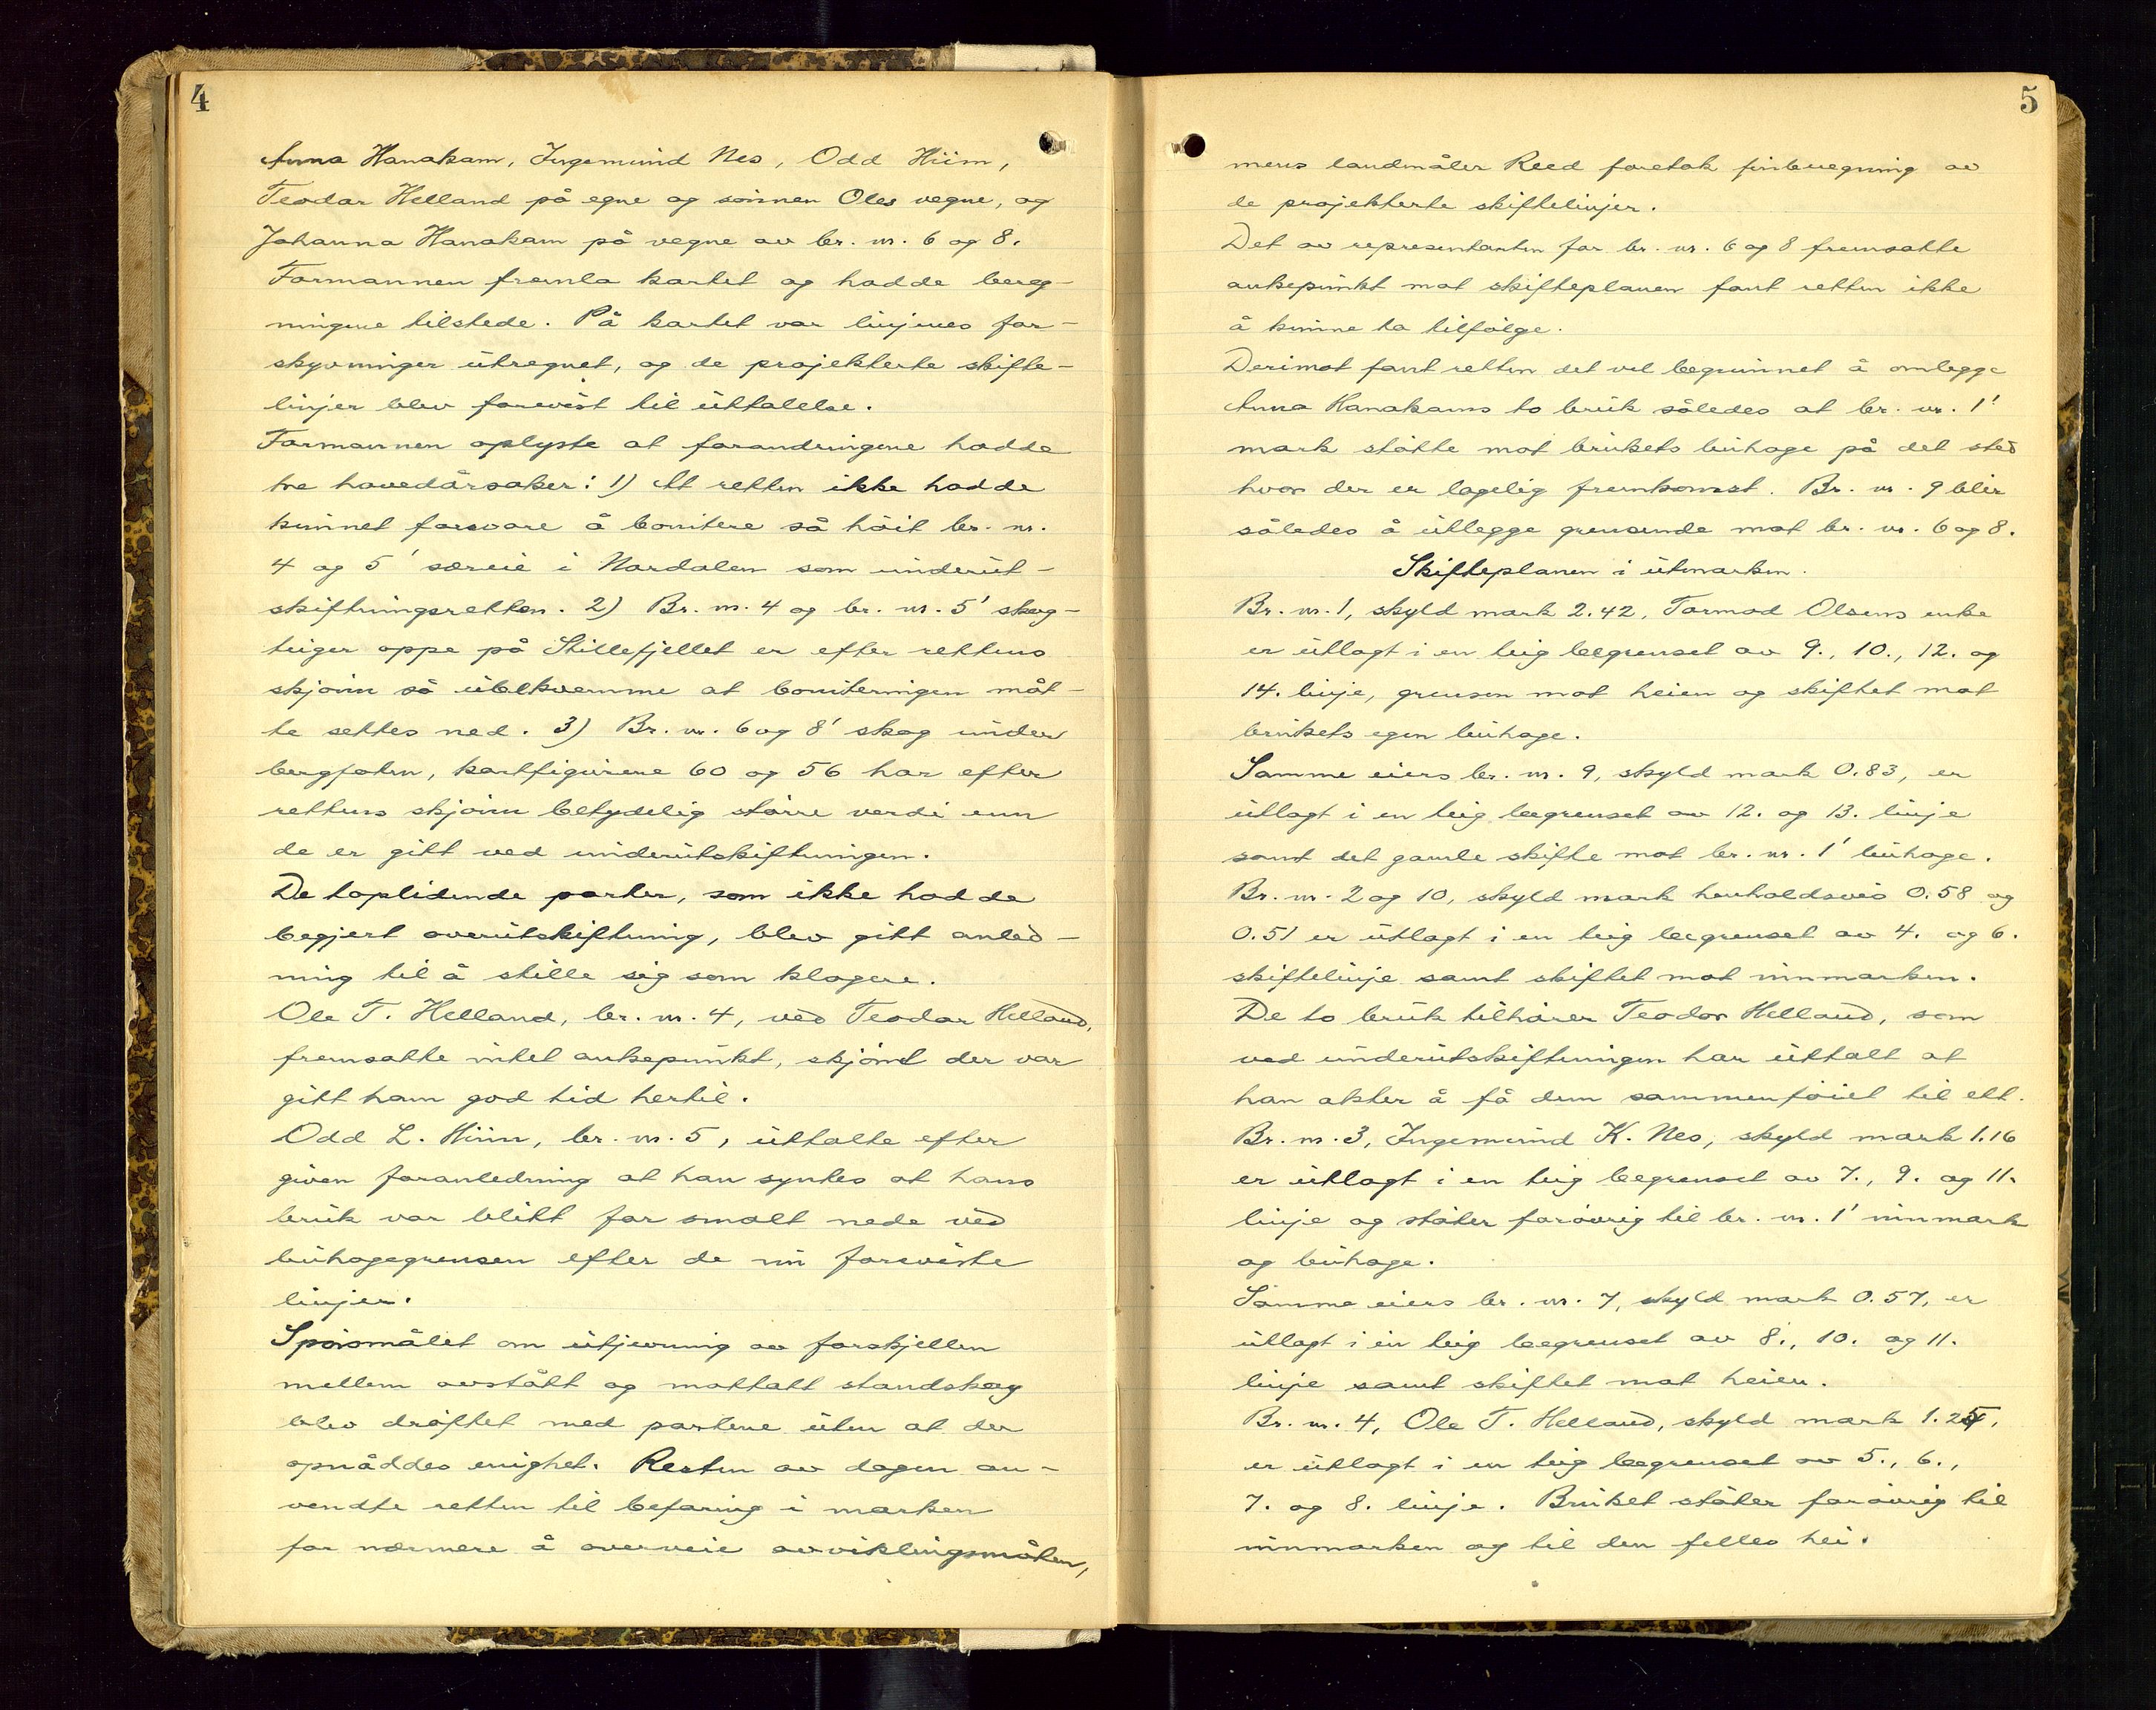 4
Anna Hanakam, Ingemund Nes, Odd Hiim,
Teodor Helland på egne og sønnen Oles vegne, og
Johanna Hanakam på vegne av br. nr. 6 og 8.
Formannen fremla kartet og hadde bereg-
ningene tilstede. På kartet var linjenes for-
skyvninger utregnet, og de projekterte skifte-
linjer blev forevist til uttalelse.
Formannen oplyste at forandringene hadde
tre hovedårsaker: 1) At retten ikke hadde
kunnet forsvare å bonitere så høit br. nr.
4 og 5' særeie i Nordalen som underut-
skiftningsretten. 2) Br. nr. 4 og br. nr. 5' skog-
teiger oppe på Stillefjellet er efter rettens
skjønn så ubekvemme at boniteringen måt-
te settes ned. 3) Br. nr. 6 og 8' skog under
bergfoten, kartfigurene 60 og 56 har efter
rettens skjønn betydelig større verdi enn
de er gitt ved underutskiftningen.
De taplidende parter, som ikke hadde
begjert overutskiftning, blev gitt anled-
ning til å stille sig som klagere.
Ole T. Helland, br. nr. 4, ved Teodor Helland,
fremsatte intet ankepunkt, skjønt der var
gitt ham god tid hertil.
Odd L. Hiim, br. nr. 5, uttalte efter
given foranledning at han syntes at hans
bruk var blitt for smalt nede ved
buhagegrensen efter de nu foreviste
linjer.
Spørsmålet om utjevning av forskjellen
mellem avstått og mottatt standskog
blev drøftet med partene uten at der
opnåddes enighet. Resten av dagen an-
vendte retten til befaring i marken
for nærmere å overveie avviklingsmåten,
5
mens landmåler Reed foretok finberegning av
de projekterte skiftelinjer.
Det av representanten for br. nr. 6 og 8 fremsatte
ankepunkt mot skifteplanen fant retten ikke
å kunne ta tilfølge.
Derimot fant retten det vel begrunnet å omlegge
Anna Hanakams to bruk således at br. nr. 1'
mark støtte mot brukets buhage på det sted
hvor der er lagelig fremkomst. Br. nr. 9 blir
således å utlegge grensende mot br. nr. 6 og 8.
Skifteplanen i utmarken.
Br. nr. 1, skyld mark 2.42, Tormod Olsens enke
er utlagt i en teig begrenset av 9., 10., 12. og
14. linje, grensen mot heien og skiftet mot
brukets egen buhage.
Samme eiers br. nr. 9, skyld mark 0.83, er
utlagt i en teig begrenset av 12. og 13. linje
samt det gamle skifte mot br. nr. 1' buhage.
Br. nr. 2 og 10, skyld mark henholdsvis 0.58 og
0.51 er utlagt i en teig begrenset av 4. og 6.
skiftelinje samt skiftet mot innmarken.
De to bruk tilhører Teodor Helland, som
ved underutskiftningen har uttalt at
han akter å få dem sammenføiet til ett.
Br. nr. 3, Ingemund K. Nes, skyld mark 1.16
er utlagt i en teig begrenset av 7., 9. og 11.
linje og støter forøvrig til br. nr. 1' innmark
og buhage.
Samme eiers br. nr. 7, skyld mark 0.57, er
utlagt i en teig begrenset av 8., 10. og 11.
linje samt skiftet mot heien.
Br. nr. 4, Ole T. Helland, skyld mark 1.25,
er utlagt i en teig begrenset av 5., 6.,
7. og 8. linje. Bruket støter forøvrig til
innmarken og til den felles hei.